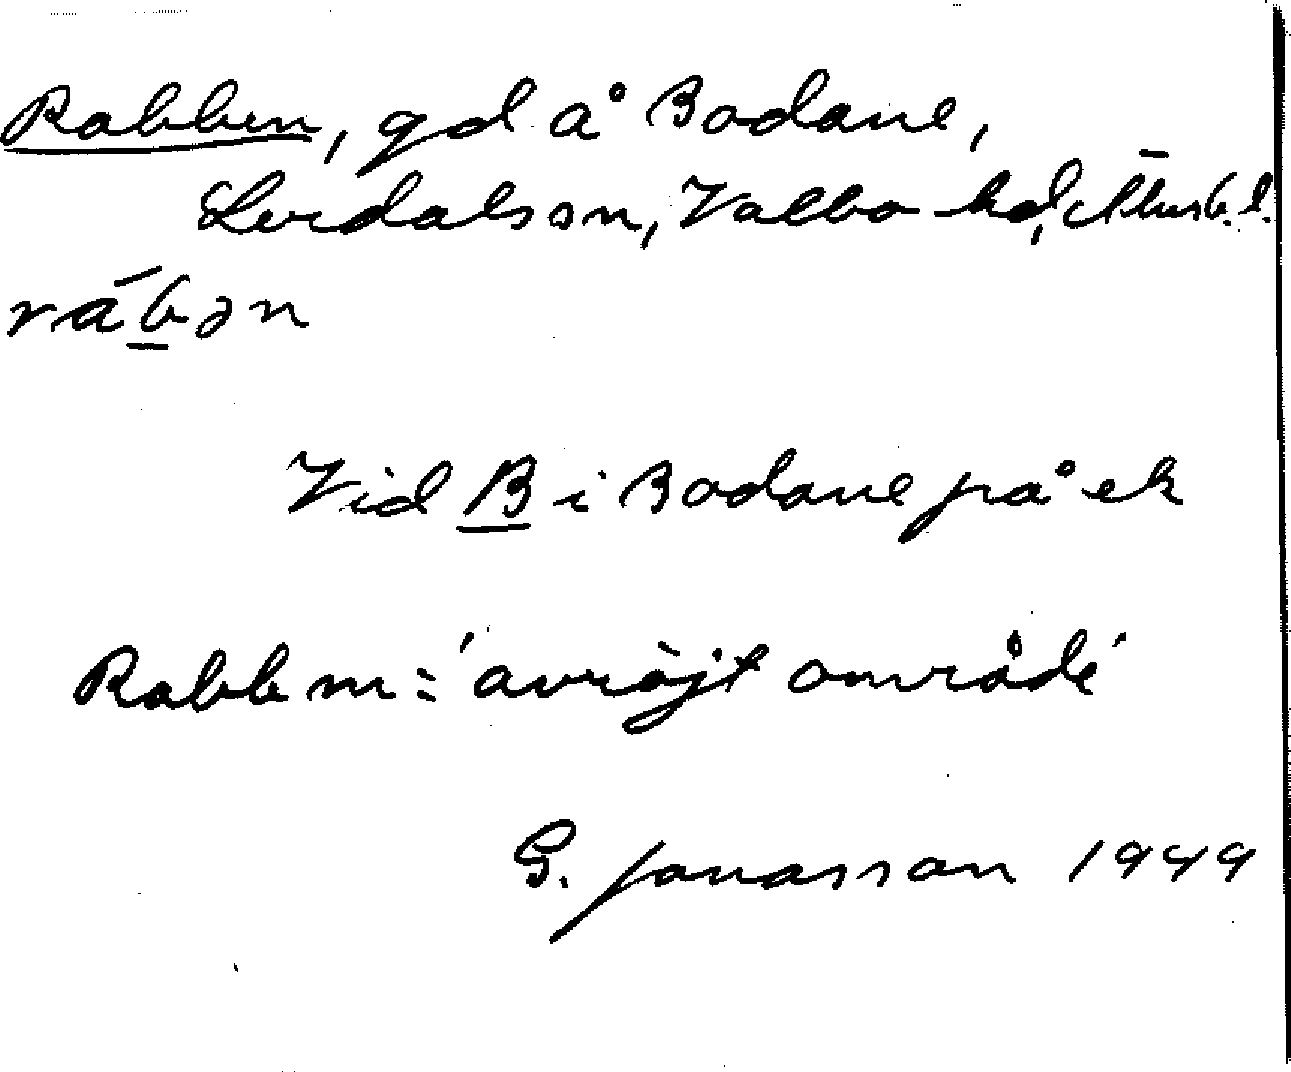 Rabben, gd å Bodane,
Lerdals sn, Valbo hd, Älvsb. l.
rábən
Vid B i Bodane på ek
Rabb m: 'avröjt område'
G. Jonasson 1949